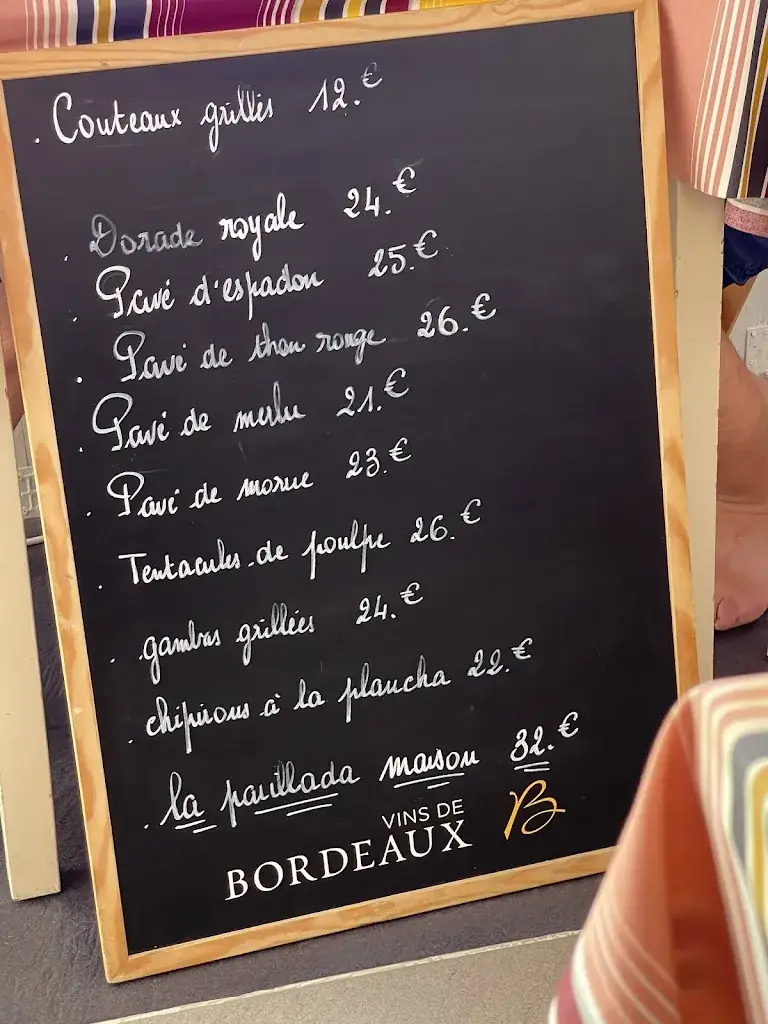 . Couteaux grillés 12.€
. Dorade royale 24.€
. Pavé d'espadon 25.€
. Pavé de thon rouge 26.€
. Pavé de merlu 21.€
. Pavé de morue 23.€
. Tentacules de poulpe 26.€
. gambas grillées 24.€
. chipirons à la plancha 22.€
. la parillada maison 32.€
VINS DE
BORDEAUX B